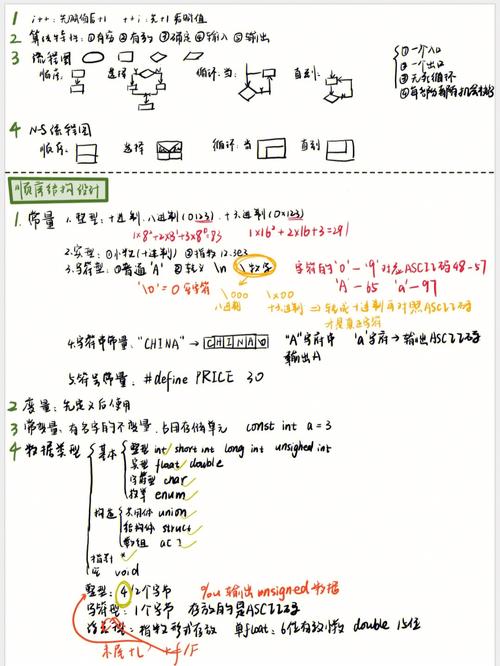 1 i++：先赋值后+1 ++i：先+1后赋值
2 算法特性：①有穷 ②有效 ③确定 ④输入 ⑤输出
3 流程图
顺序： 选择 循环：当： 直到：
①一个入口
②一个出口
③无死循环
4 N-S流程图
顺序： 选择 循环：当 直到
顺序结构设计
1. 常量 1.整型：十进制、八进制(0123)、十六进制(0x123)
1×8²+2×8¹+3×8⁰=83 1×16²+2×16+3=291
2.实型：①小数(十进制) ②指数 12.3e3
3.字符型：①普通'A' ②转义 \n \数字
字符的'0'－'9'对应ASCII码48-57
'\0'=0 空字符 'A'－65 'a'－97
\ooo \xoo ⇒ 转成十进制再对照ASCII码
八进制 十六进制 才是真正字符
4.字符串常量："CHINA" → C H I N A \0
"A"字符串 'a'字符→输出ASCII码
输出A
5.符号常量：#define PRICE 30
2 变量：先定义后使用
3 常变量：有名字的不变量，占用存储单元 const int a=3
4 数据类型
基本 整型 int/short int long int unsighed int
实型 float/double
字符型 char
枚举 enum
构造 共用体 union
结构体 struct
数组 a[ ]
指针 *
空 void
整型：4/2个字节 %u 输出unsigned数据
字符型：1个字节 存放的是ASCII码
指数形式存放 单float：6位有效小数 double 15位
末尾+L +f/F